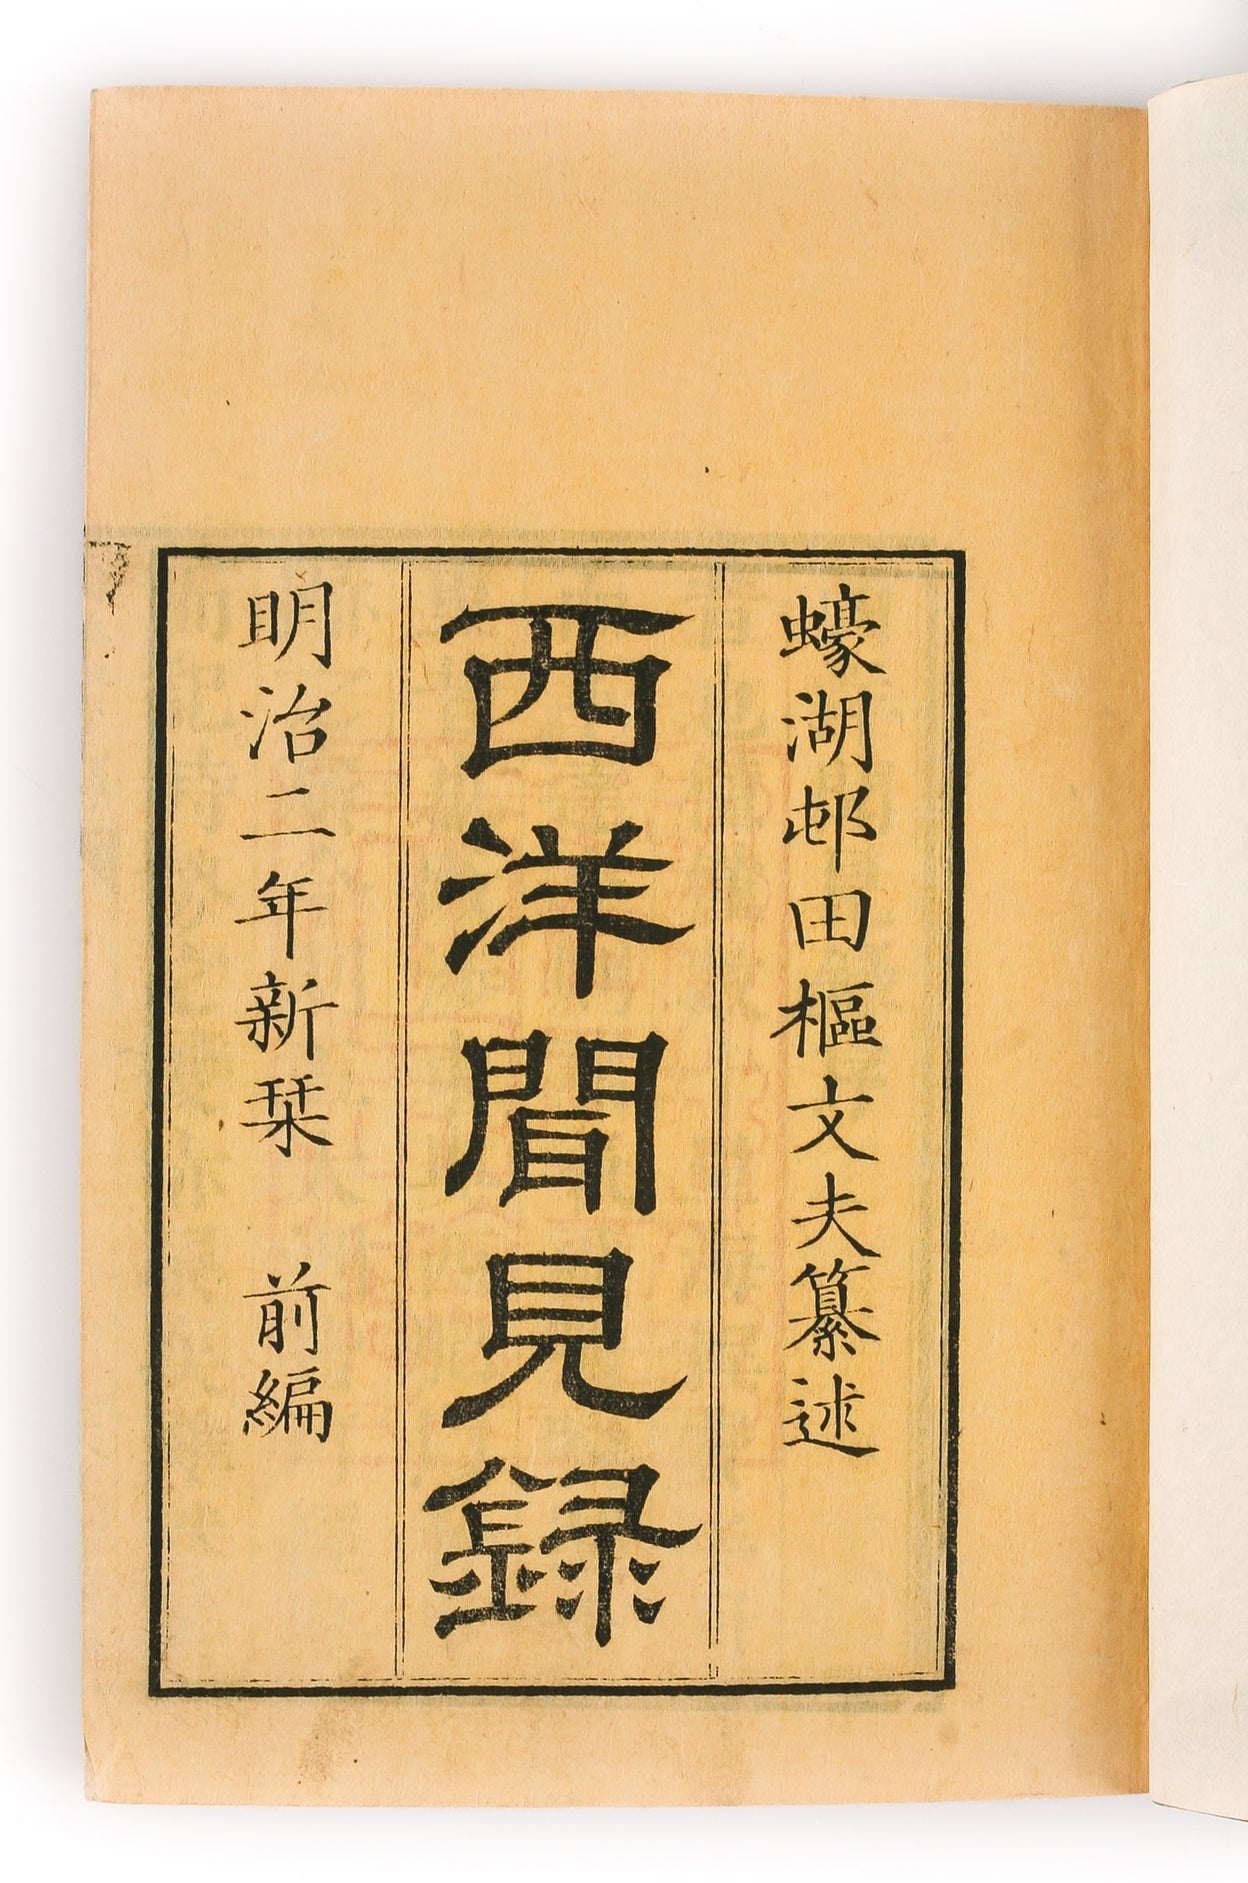 蠔湖邨田樞文夫纂述
西洋聞見録
明治二年新栞　前編